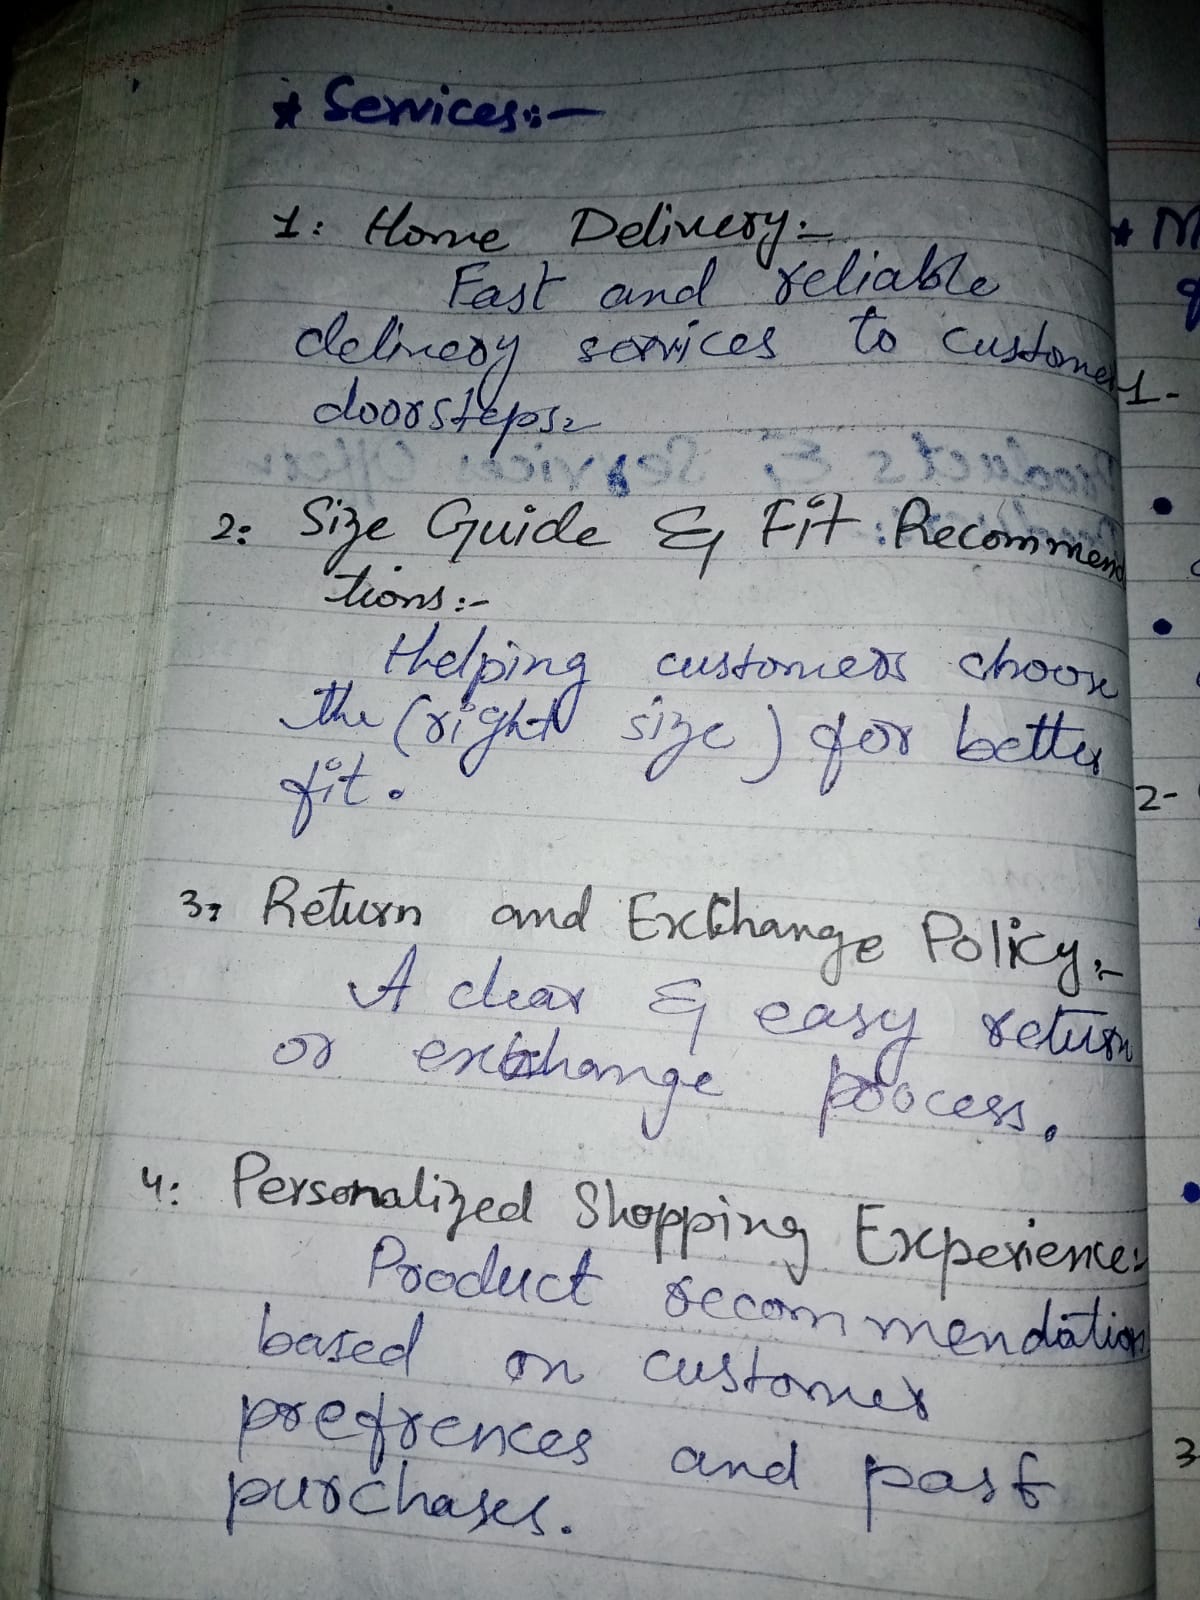 * Services:-
1: Home Delivery:-
Fast and reliable
delivery services to customer
doorsteps.
2: Size Guide & Fit Recommend
tions:-
Helping customers choose
the (right size) for better
fit.
3: Return and Exchange Policy:-
A clear & easy return
or exchange process.
4: Personalized Shopping Experience:
Product recommendation
based on customer
prefrences and past
purchases.
* M
1-
2-
3